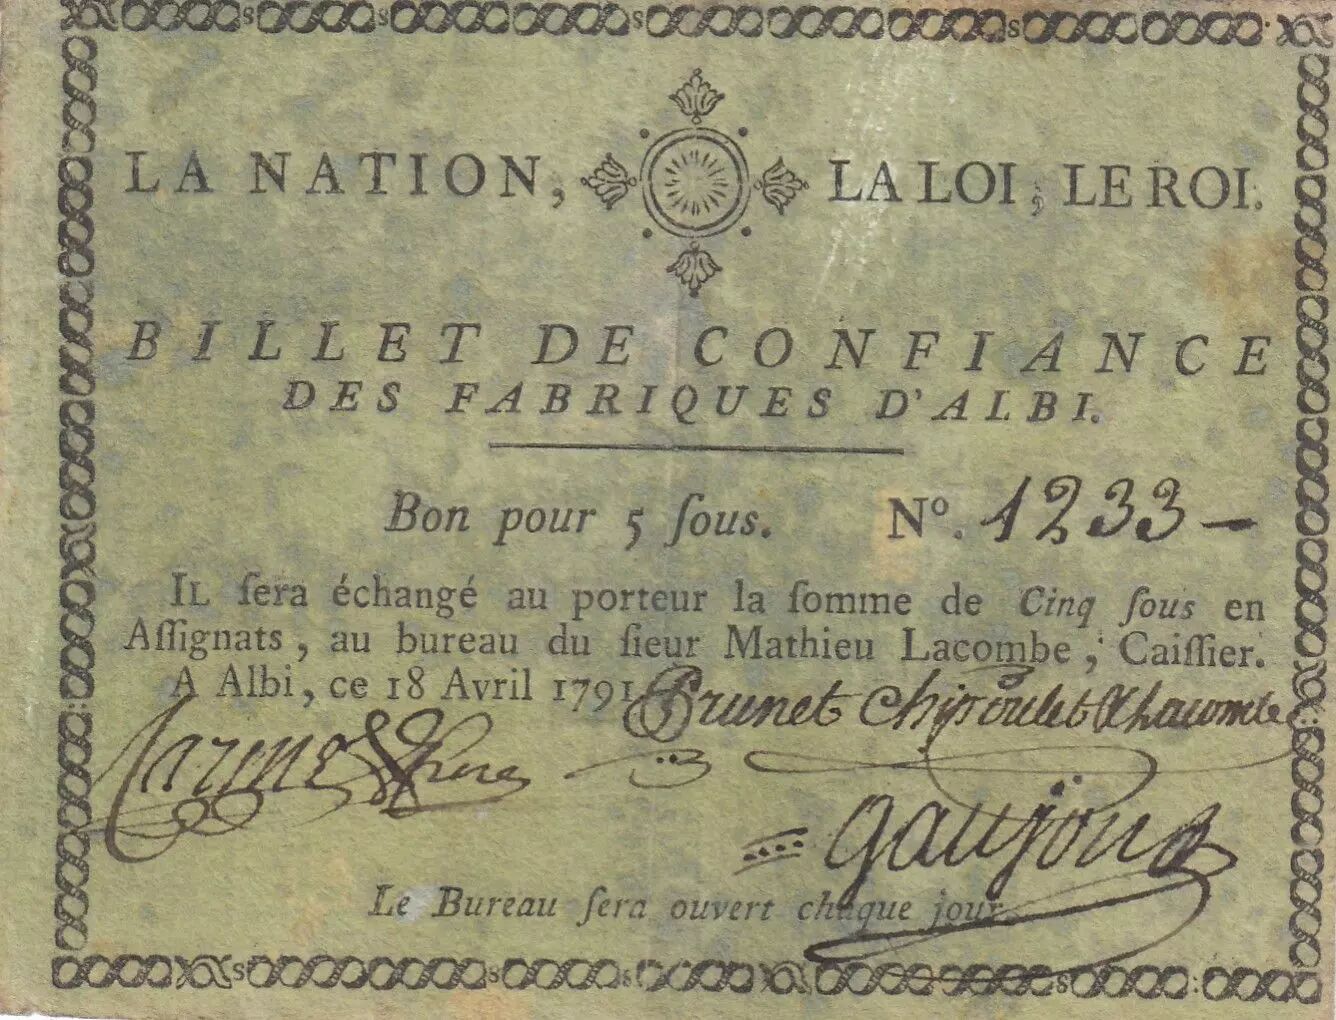 LA NATION, LA LOI, LE ROI.
BILLET DE CONFIANCE
DES FABRIQUES D'ALBI.
Bon pour 5 ſous. Nº. 1233
IL ſera échangé au porteur la ſomme de Cinq ſous en
Aſſignats, au bureau du ſieur Mathieu Lacombe, Caiſſier.
A Albi, ce 18 Avril 1791 Brunet
gaujou
Le Bureau ſera ouvert chaque jour.